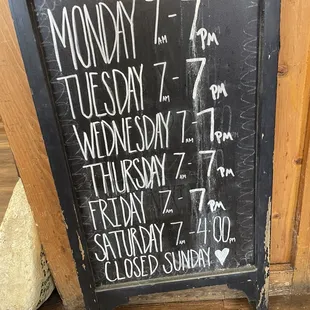 MONDAY 7AM-7PM
TUESDAY 7AM-7PM
WEDNESDAY 7AM-7PM
THURSDAY 7AM-7PM
FRIDAY 7AM-7PM
SATURDAY 7AM-4:00PM
CLOSED SUNDAY